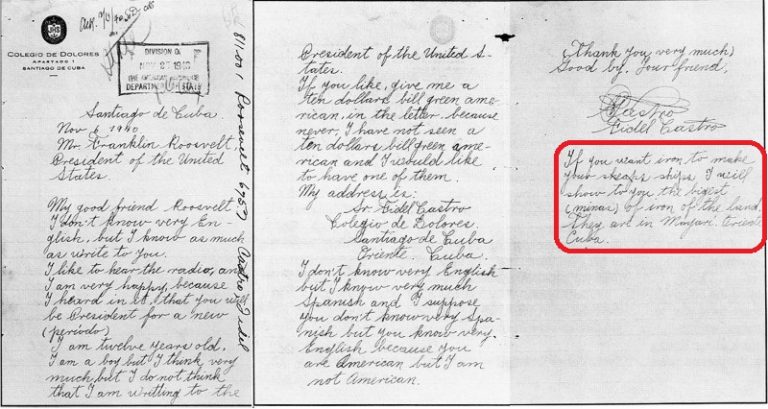 COLEGIO DE DOLORES
APARTADO 1
SANTIAGO DE CUBA
DIVISION O
NOV 27 1940
THE AMERICAN
DEPARTMENT OF STATE
811.001 Roosevelt
Castro, Fidel
Santiago de Cuba
Nov 6 1940
Mr. Franklin Roosvelt,
President of the United
States.
My good friend Roosvelt
I don't know very En-
glish, but I know as much
as write to you.
I like to hear the radio, and
I am very happy, because
I heard in it, that you will
be President for a new
(periodo)
I am twelve years old.
I am a boy but I think very
much but I do not think
that I am writting to the
President of the United S-
tates.
If you like, give me a
ten dollars bill green ame-
rican, in the letter, because
never, I have not seen a
ten dollars bill green ame-
rican and I would like
to have one of them.
My address is:
Sr. Fidel Castro
Colegio de Dolores.
Santiago de Cuba
Oriente. Cuba.
I don't know very English
but I know very much
Spanish and I suppose
you don't know very Spa-
nish but you know very
English because you
are American but I am
not American.
(Thank you very much)
Good by. Your friend,
Castro
Fidel Castro
If you want iron to make
your sheaps ships I will
show to you the bigest
(minas) of iron of the land.
They are in Mayari Oriente
Cuba.